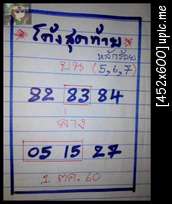 * โค้งสุดท้าย *
หลักร้อย
บน (5,6,7)
82 83 84
ล่าง
05 15 27
1 ตค. 60
[452x600] upic.me